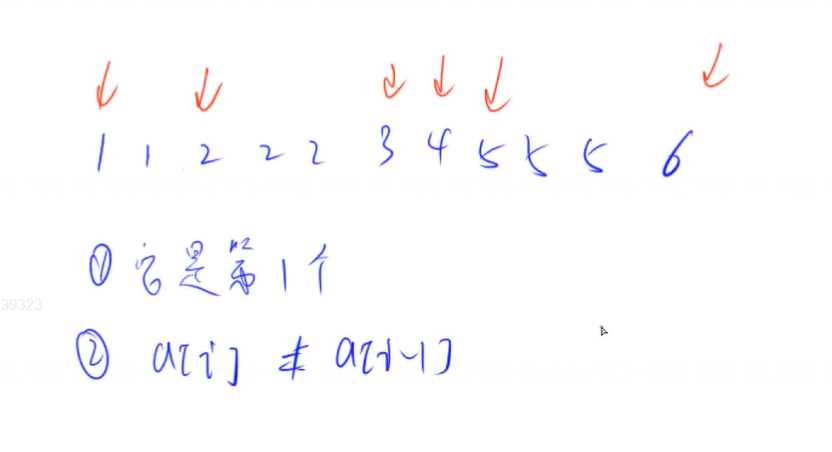 1 1 2 2 2 3 4 5 5 5 6
① 它是第1个
② a[i] ≠ a[i-1]
39323